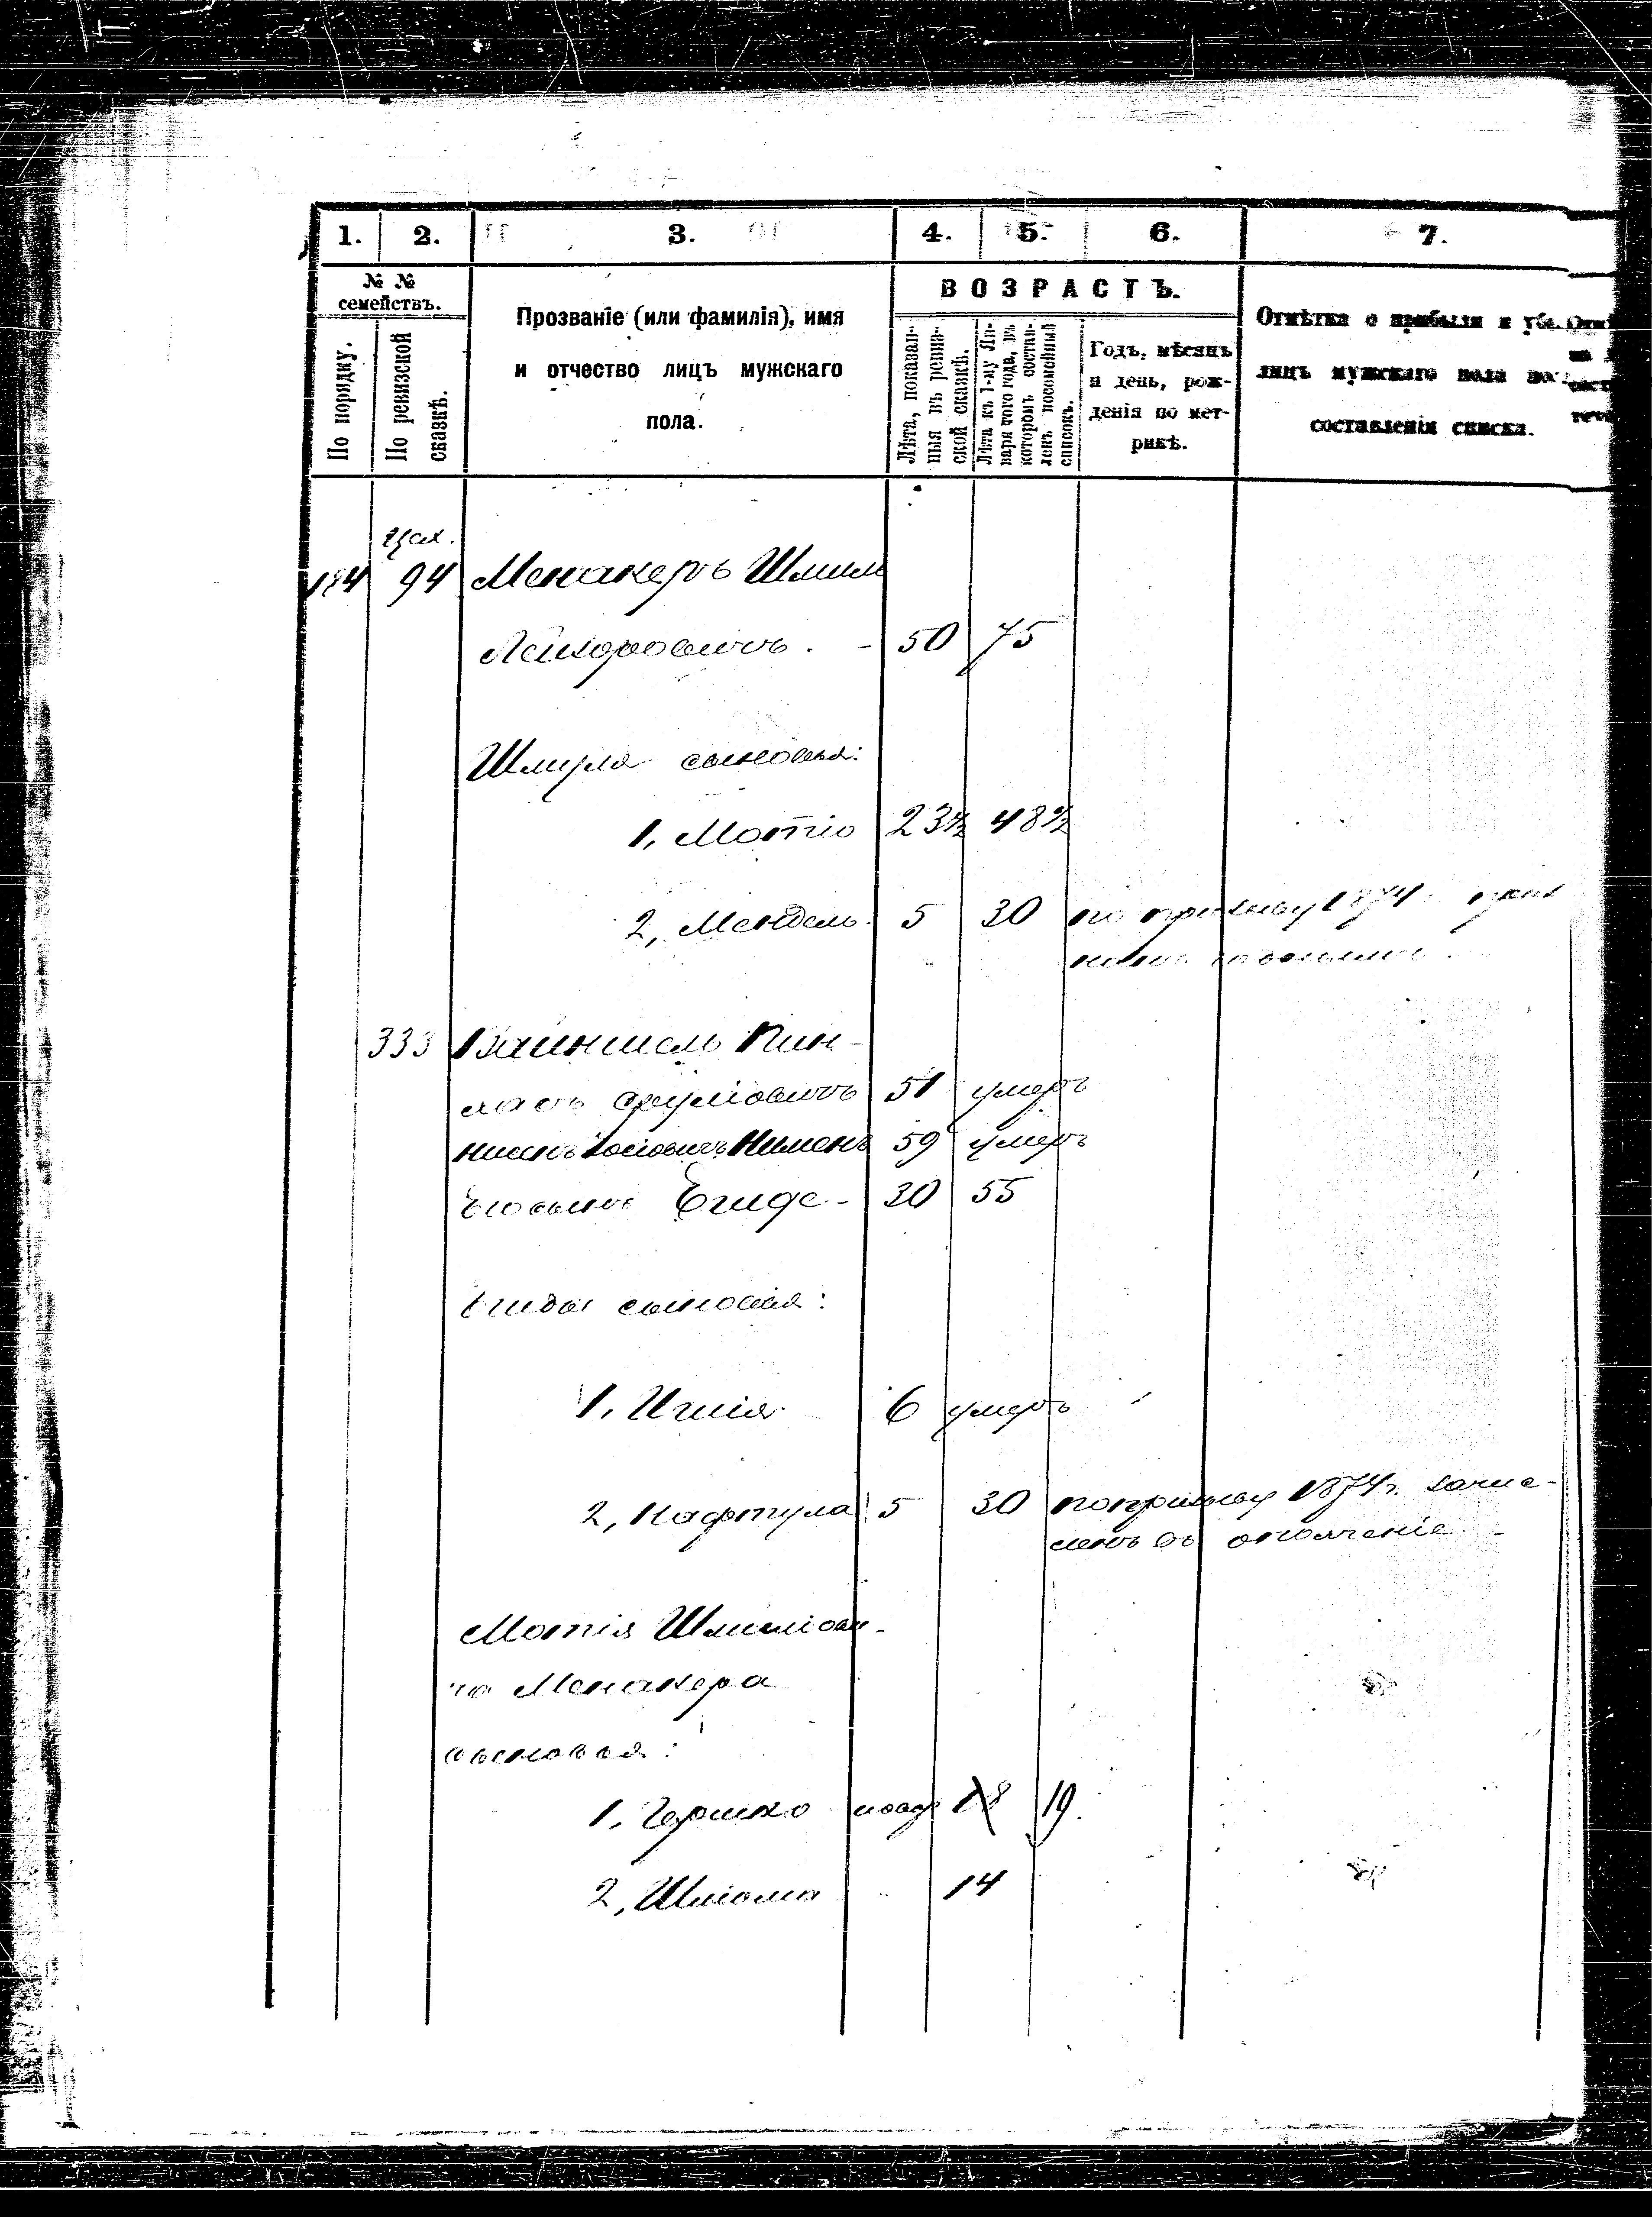 1. 2. 3. 4. 5. 6. 7.
№ №
семействъ.
По порядку.
По ревизской
сказкѣ.
Прозваніе (или фамилія), имя
и отчество лицъ мужскаго
пола.
ВОЗРАСТЪ.
Лѣта, показан-
ныя въ ревиз-
ской сказкѣ.
Лѣта къ 1-му Ян-
варя того года, въ
которомъ состав-
ленъ посемейный
списокъ.
Годъ, мѣсяцъ
и день, рож-
денія по мет-
рикѣ.
Отмѣтка о прибыли и убы
лицъ мужскаго пола
составленія списка.
184 94 Менакеръ Шмиль
50 75
Шмуля сыновья:
1, Мотіо 23½ 48½
2, Мендель 5 30 по призыву 1874
333 Вайншель Пин-
51 умеръ
59 умеръ
30 55
сыновья:
1, Игнія 6 умеръ
2, Нафтула 5 30 по призыву 1874г. зачис-
ленъ въ ополченіе
Мотія Шмиліови-
ча Менакера
сыновья:
1, Гершко 18 19.
2, Шліома 14